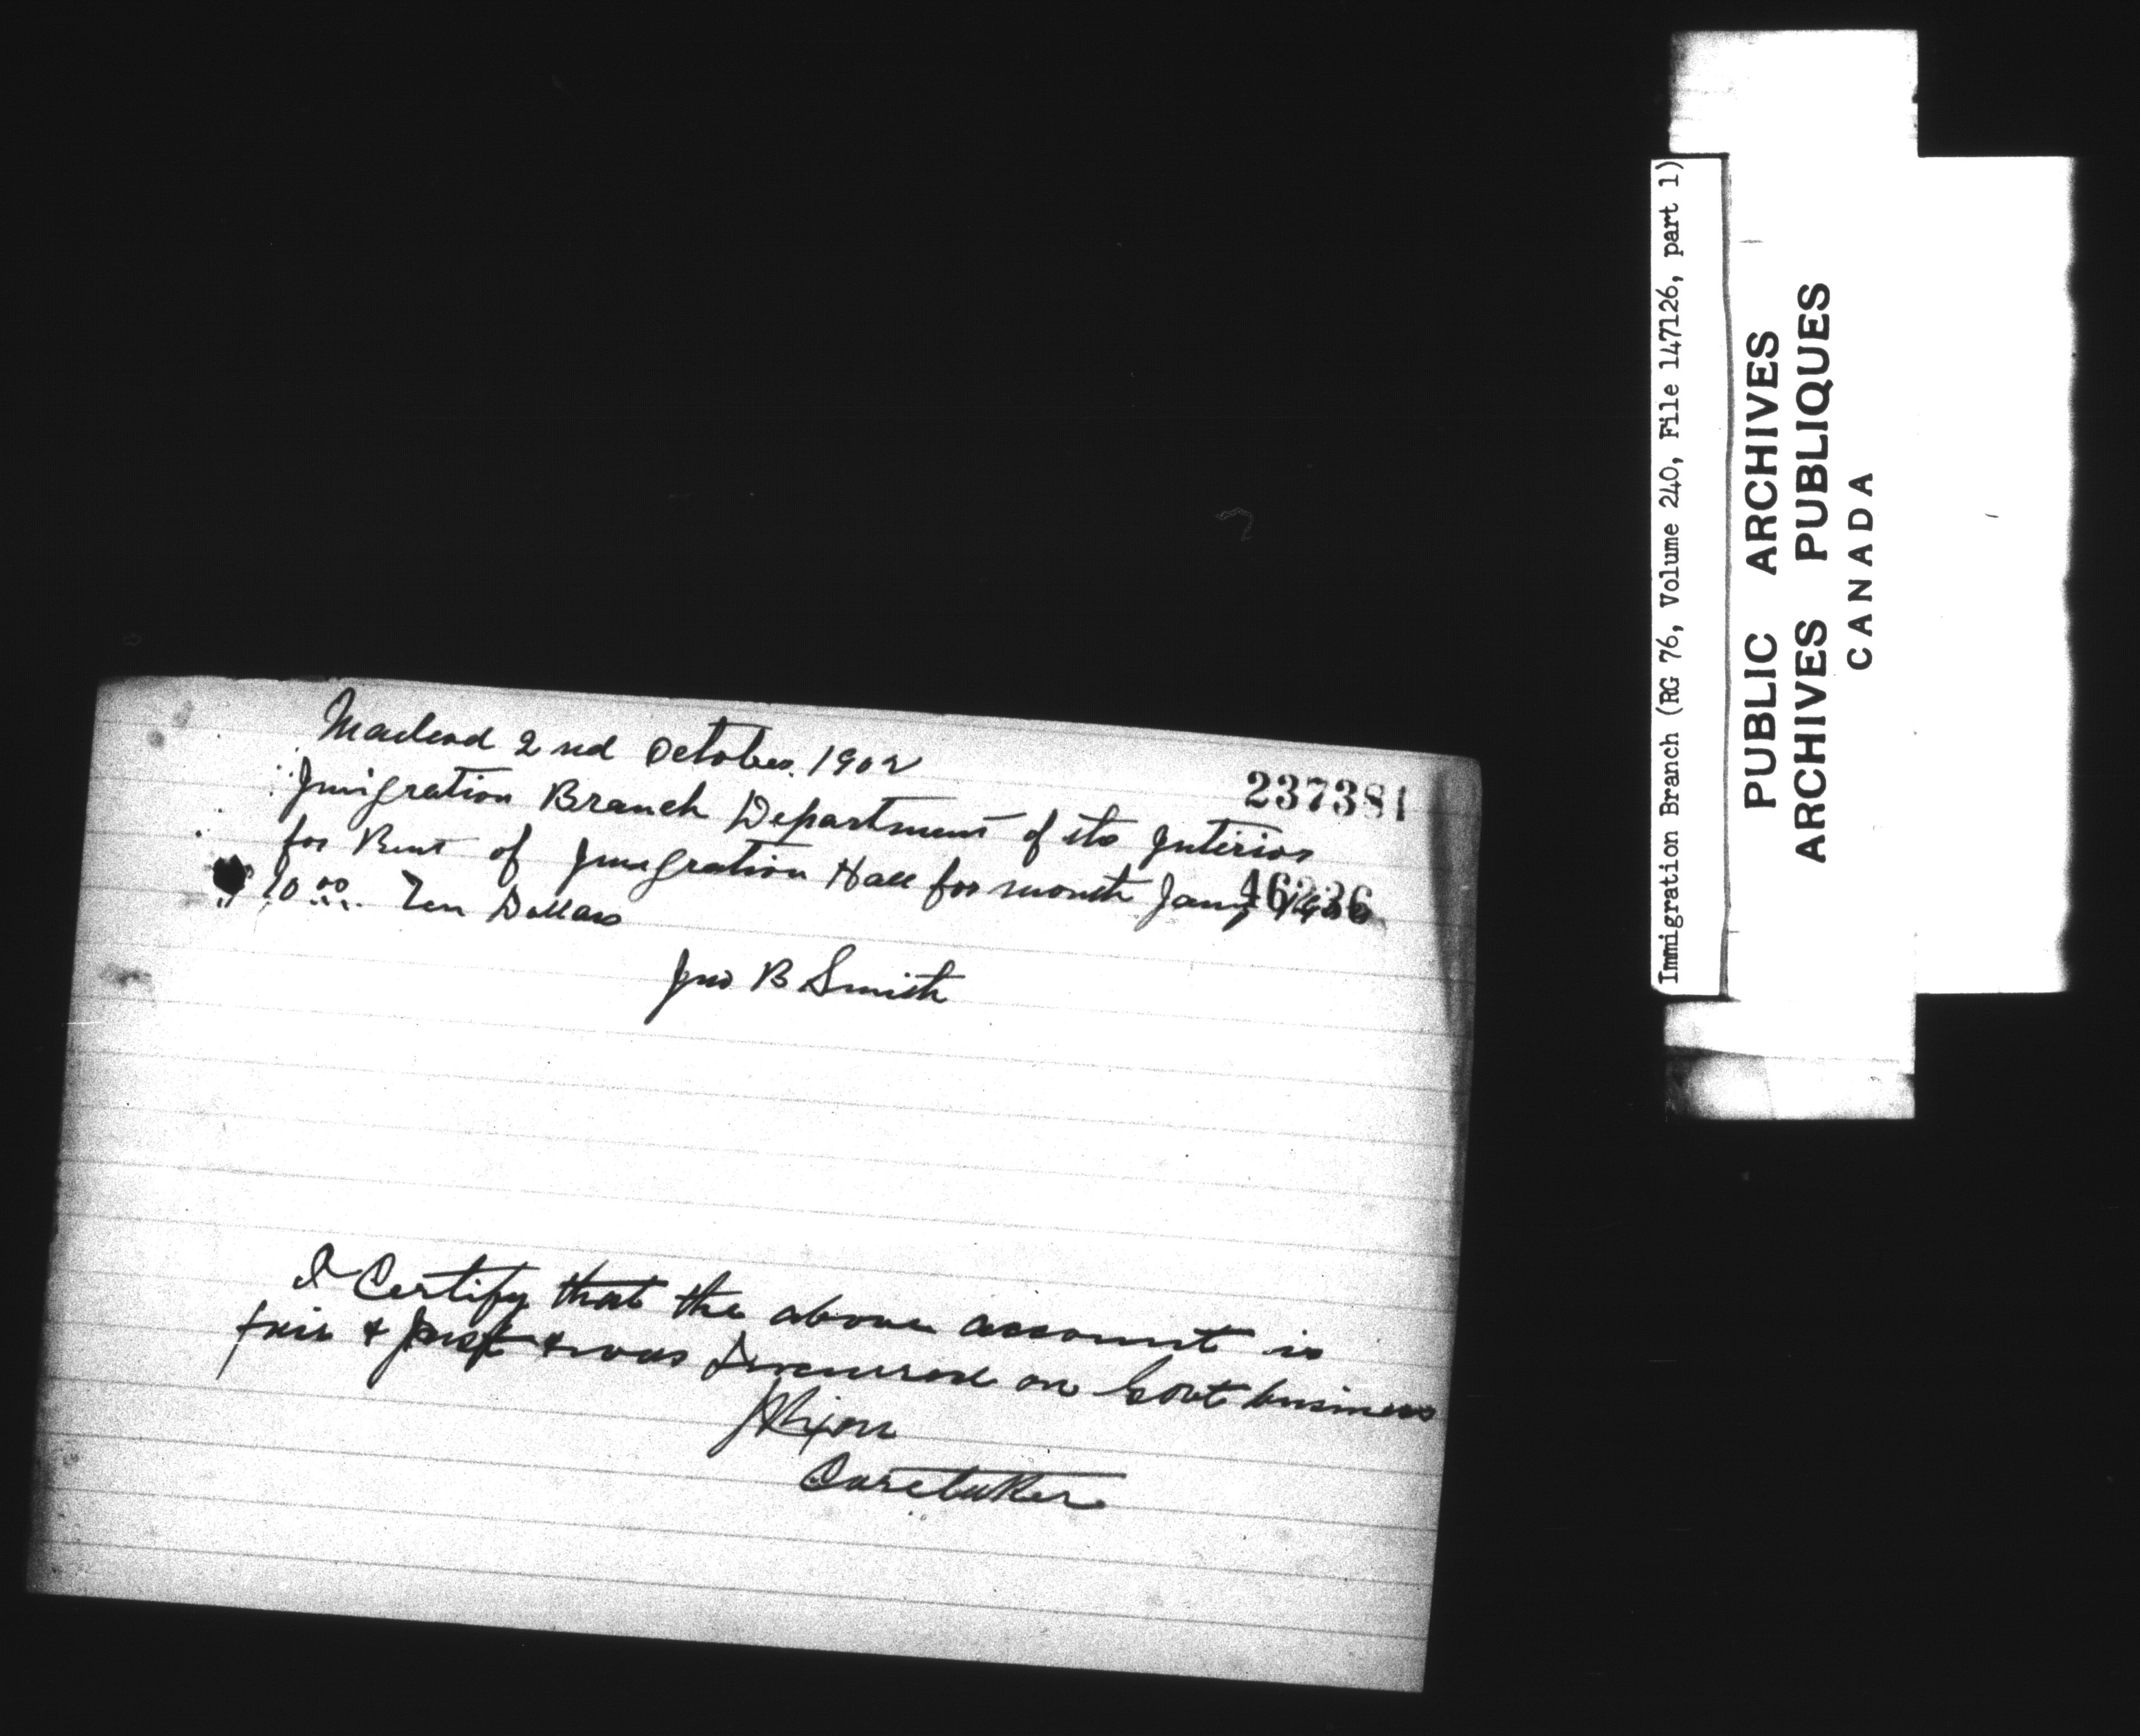 Macleod 2nd October 1902
237381
Imigration Branch Department of its Interior
for Rent of Imigration Hall for month Jany
46236
10 00 Ten Dollars
Jno B Smith
I Certify that the above account is
fair & Just & was Incurred on Govt business
Caretaker
Immigration Branch (RG 76, Volume 240, File 147126, part 1)
PUBLIC ARCHIVES
ARCHIVES PUBLIQUES
CANADA